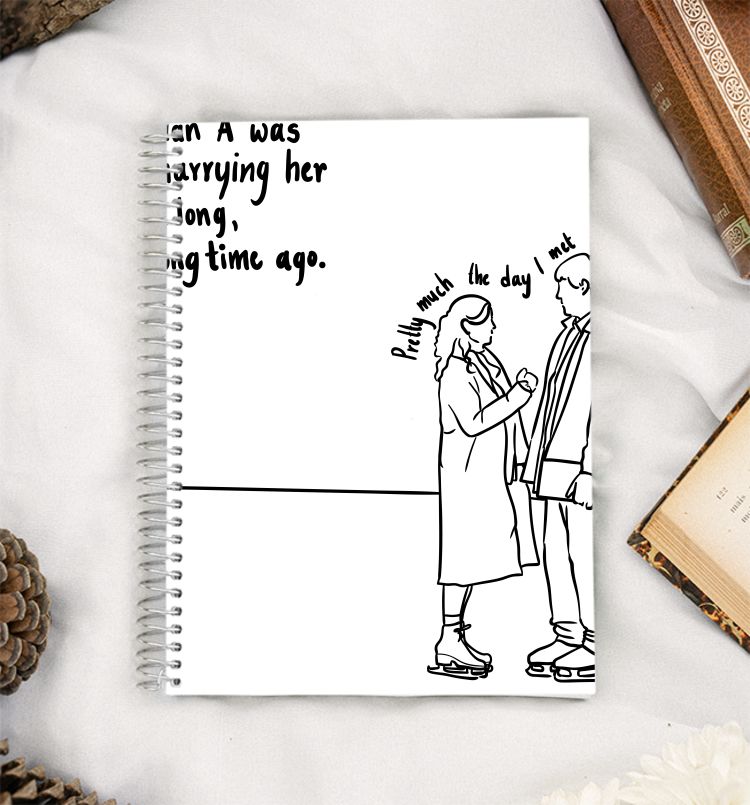 an A was
arrying her
long,
ng time ago.
Pretty much the day I met
122
mais